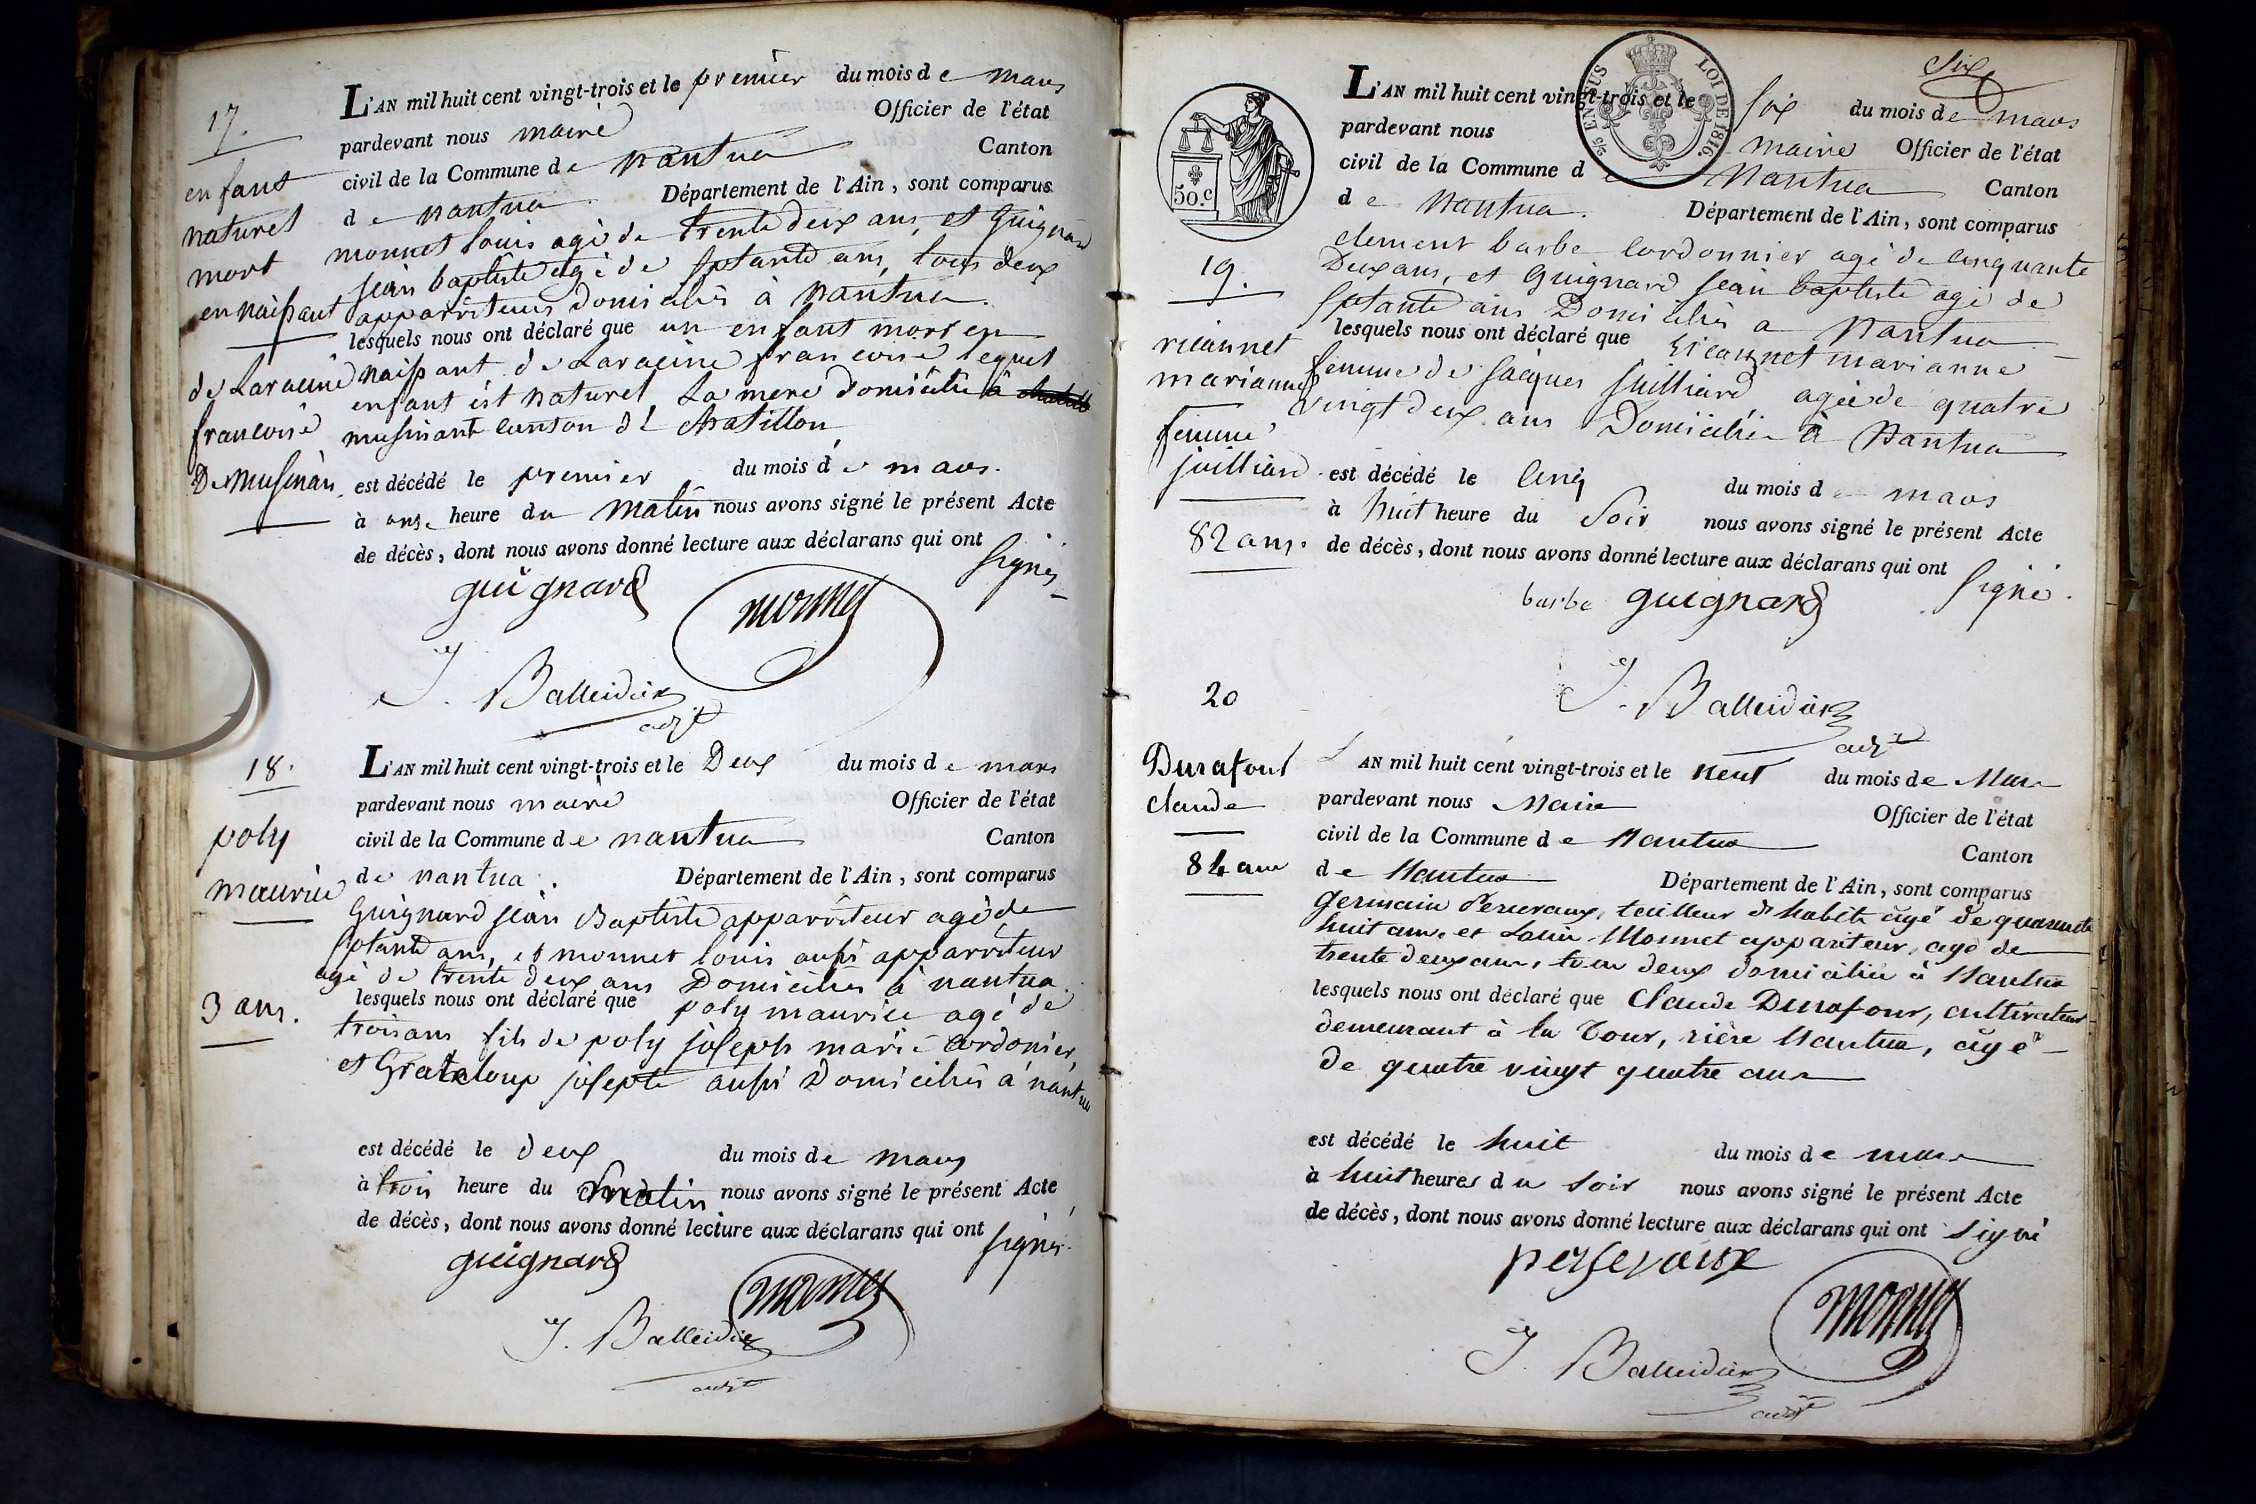 17.
enfant
naturel
mort
en naissant
de Laracine
francoise
De Musinan
L'AN mil huit cent vingt-trois et le premier du mois de mars
pardevant nous maire Officier de l'état
civil de la Commune de nantua Canton
de nantua. Département de l'Ain, sont comparus
monnet louis agé de trente deux ans, et Guignard
jean baptiste agé de septante ans, tous deux
apparriteurs domiciliés à nantua.
lesquels nous ont déclaré que un enfant mort en
naissant de Laracine francoise lequel
enfant est naturel La mere domiciliée à
musinant canton de Chatillon
est décédé le premier du mois de mars.
à onze heure du matin nous avons signé le présent Acte
de décès, dont nous avons donné lecture aux déclarans qui ont signés
guignard monnet
J. Balleidier
adjt
18.
poly
maurice
3 ans.
L'AN mil huit cent vingt-trois et le Deux du mois de mars
pardevant nous maire Officier de l'état
civil de la Commune de nantua Canton
de nantua. Département de l'Ain, sont comparus
Guignard jean Baptiste apparriteur agé de
septante ans, et monnet louis aussi apparriteur
agé de trente deux ans Domiciliés à nantua.
lesquels nous ont déclaré que poly maurice agé de
trois ans fils de poly joseph marie Cordonier
et Grateloup josephte aussi Domiciliés a nantua
est décédé le deux du mois de mars
à trois heure du matin nous avons signé le présent Acte
de décès, dont nous avons donné lecture aux déclarans qui ont signés.
guignard monnet
J. Balleidier
adjt
Six
25 EN SUS LOI DE 1816.
50.c
19.
ricannet
marianne
femme
juilliard
82 ans.
L'AN mil huit cent vingt-trois et le six du mois de mars
pardevant nous maire Officier de l'état
civil de la Commune de Nantua Canton
de Nantua. Département de l'Ain, sont comparus
clement barbe cordonnier agé de cinquante
Deux ans, et Guignard jean baptiste agé de
septante ans Domiciliés a Nantua
lesquels nous ont déclaré que ricannet marianne
femme de jacques juilliard agée de quatre
vingt deux ans Domiciliée à Nantua
est décédé le cinq du mois de mars
à huit heure du soir nous avons signé le présent Acte
de décès, dont nous avons donné lecture aux déclarans qui ont signé.
barbe guignard
J. Balleidier
adjt
20
Durafour
claude
84 ans
L'AN mil huit cent vingt-trois et le neuf du mois de Mars
pardevant nous Maire Officier de l'état
civil de la Commune de Nantua Canton
de Nantua Département de l'Ain, sont comparus
Germain Perseraux, tailleur d'habits âgé de quarante
huit ans, et Louis Monnet appariteur, agé de
trente deux ans, tous deux domiciliés à Nantua
lesquels nous ont déclaré que Claude Durafour, cultivateur
demeurant à la Tour, rière Nantua, âgé
de quatre vingt quatre ans
est décédé le huit du mois de mars
à huit heures du soir nous avons signé le présent Acte
de décès, dont nous avons donné lecture aux déclarans qui ont signé
perseraux
monnet
J. Balleidier
adjt